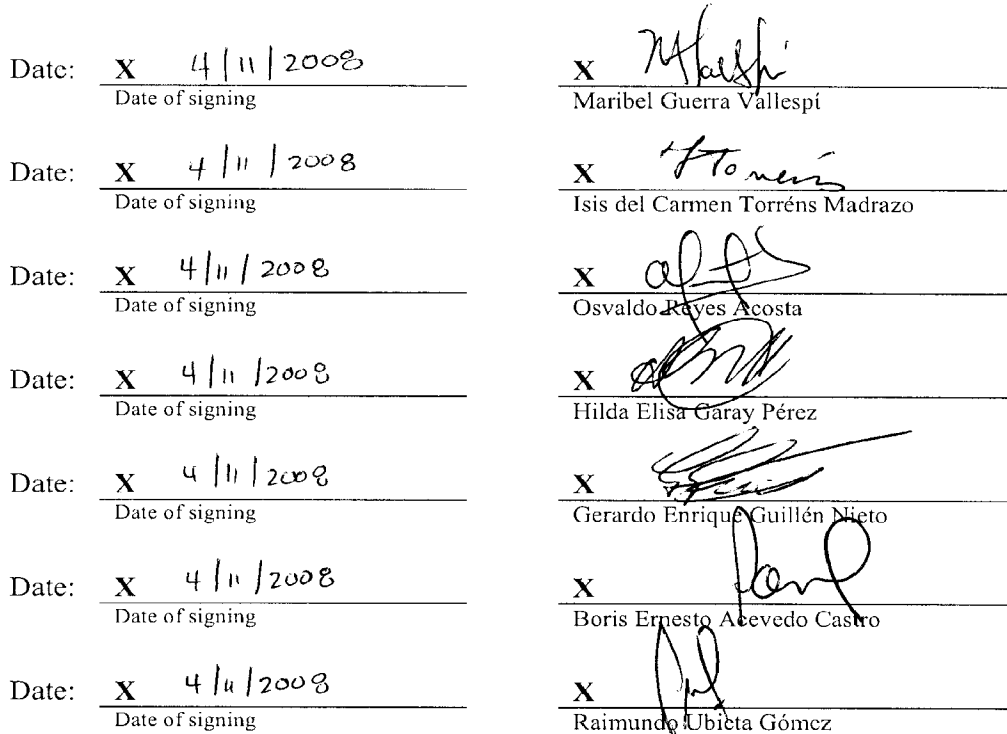 Date: X 4/11/2008 X
Date of signing Maribel Guerra Vallespí
Date: X 4/11/2008 X
Date of signing Isis del Carmen Torréns Madrazo
Date: X 4/11/2008 X
Date of signing Osvaldo Reyes Acosta
Date: X 4/11/2008 X
Date of signing Hilda Elisa Garay Pérez
Date: X 4/11/2008 X
Date of signing Gerardo Enrique Guillén Nieto
Date: X 4/11/2008 X
Date of signing Boris Ernesto Acevedo Castro
Date: X 4/11/2008 X
Date of signing Raimundo Ubieta Gómez